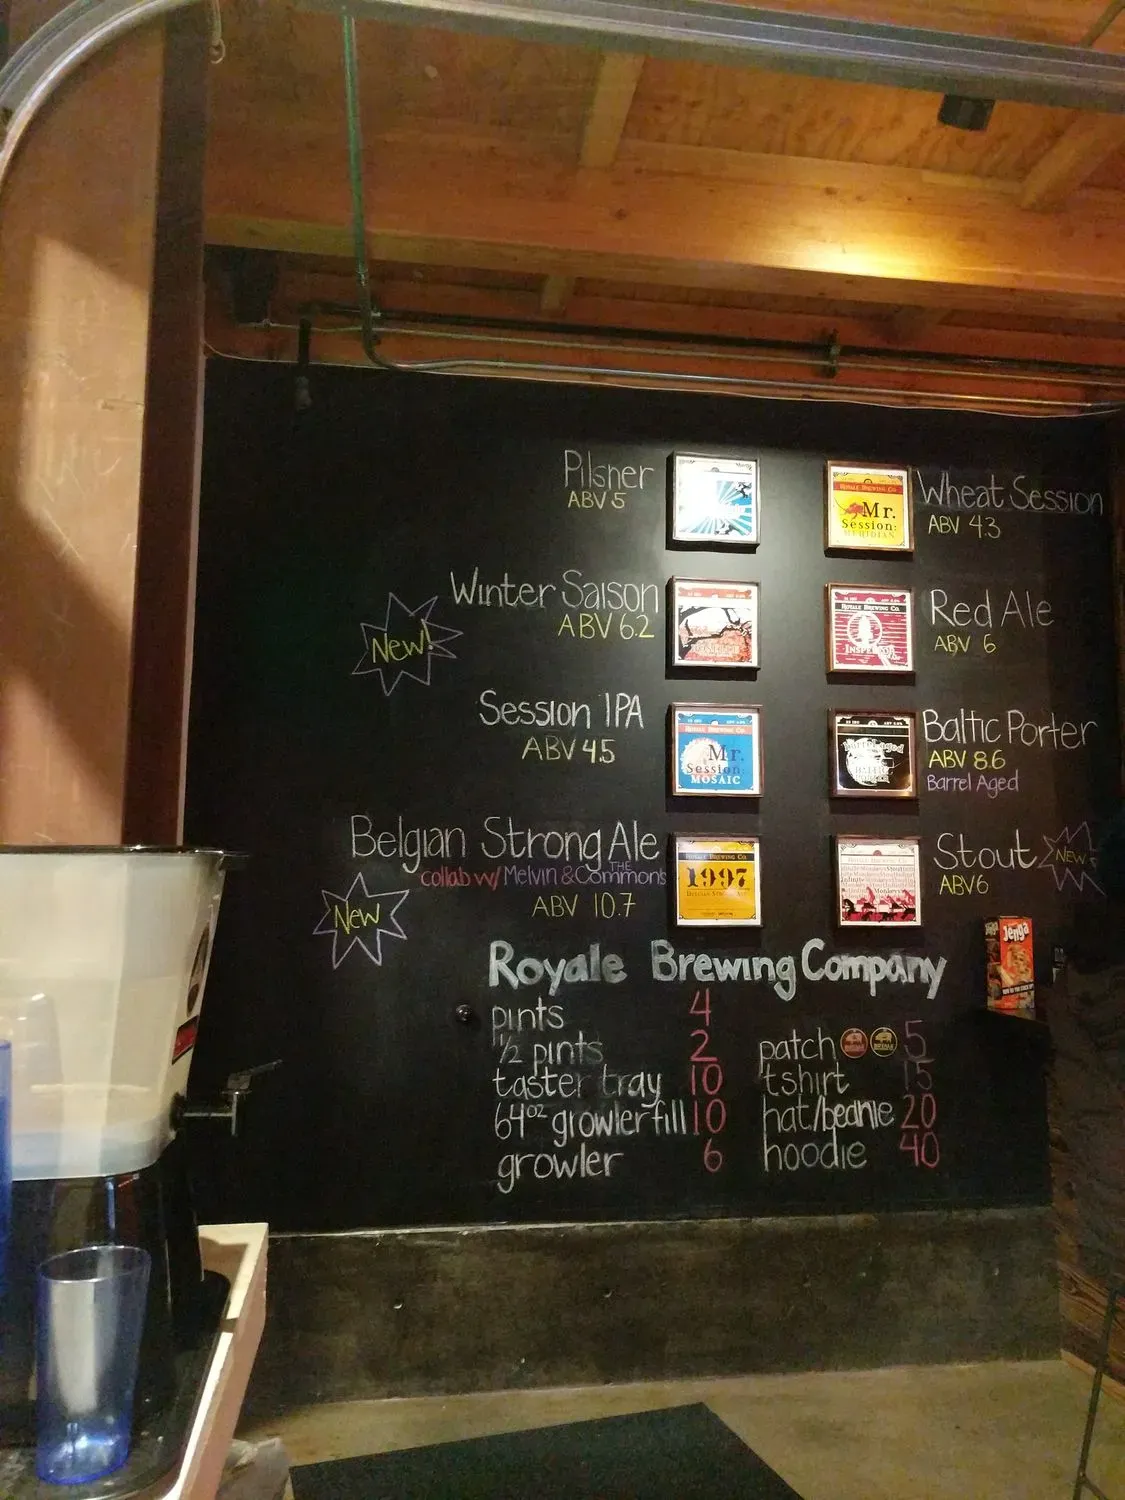 Pilsner
ABV 5
Winter Saison
ABV 6.2
New!
Session IPA
ABV 4.5
Belgian Strong Ale
collab w/ Melvin & THE Commons
ABV 10.7
New
ROYALE BREWING CO.
Mr.
Session:
MOSAIC
ROYALE BREWING CO.
1997
BELGIAN STRONG ALE
ROYALE BREWING CO.
Mr.
Session:
MERIDIAN
Wheat Session
ABV 4.3
ROYALE BREWING CO.
Red Ale
ABV 6
Baltic Porter
ABV 8.6
Barrel Aged
Stout
ABV 6
New
Jenga
Royale Brewing Company
pints 4
1/2 pints 2
taster tray 10
64oz growler fill 10
growler 6
patch 5
tshirt 15
hat/beanie 20
hoodie 40